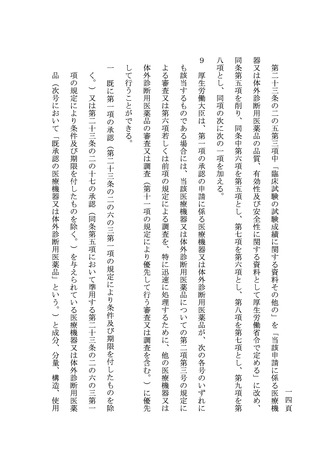 一四頁
第二十三条の二の五第三項中「臨床試験の試験成績に関する資料その他の」を「当該申請に係る医療機
器又は体外診断用医薬品の品質、有効性及び安全性に関する資料として厚生労働省令で定める」に改め、
同条第五項を削り、同条中第六項を第五項とし、第七項を第六項とし、第八項を第七項とし、第九項を第
八項とし、同項の次に次の一項を加える。
９　厚生労働大臣は、第一項の承認の申請に係る医療機器又は体外診断用医薬品が、次の各号のいずれに
も該当するものである場合には、当該医療機器又は体外診断用医薬品についての第二項第三号の規定に
よる審査又は第六項若しくは前項の規定による調査を、特に迅速に処理するために、他の医療機器又は
体外診断用医薬品の審査又は調査（第十一項の規定により優先して行う審査又は調査を含む。）に優先
して行うことができる。
一　既に第一項の承認（第二十三条の二の六の三第一項の規定により条件及び期限を付したものを除
く。）又は第二十三条の二の十七の承認（同条第五項において準用する第二十三条の二の六の三第一
項の規定により条件及び期限を付したものを除く。）を与えられている医療機器又は体外診断用医薬
品（次号において「既承認の医療機器又は体外診断用医薬品」という。）と成分、分量、構造、使用